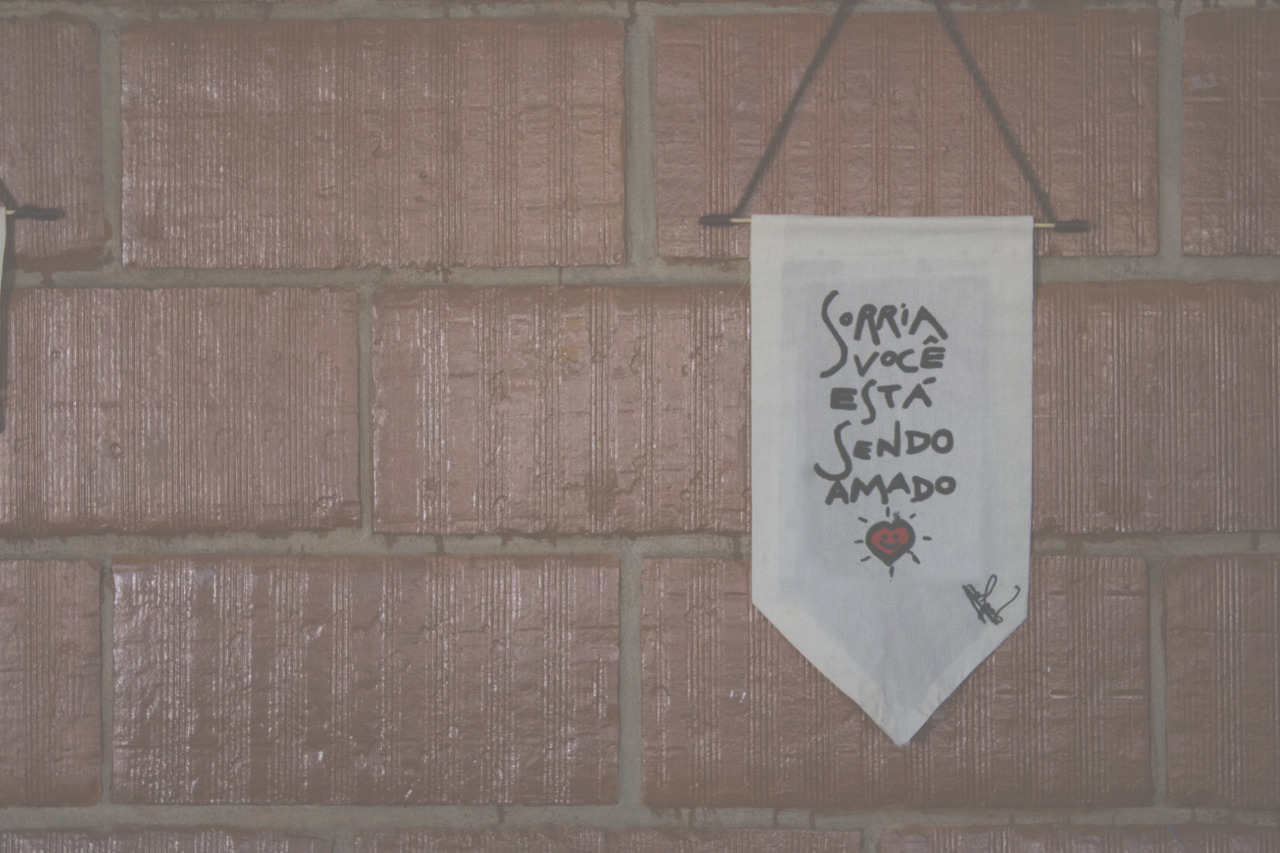 SORRiA
VOCÊ
ESTÁ
SENDO
AMADO